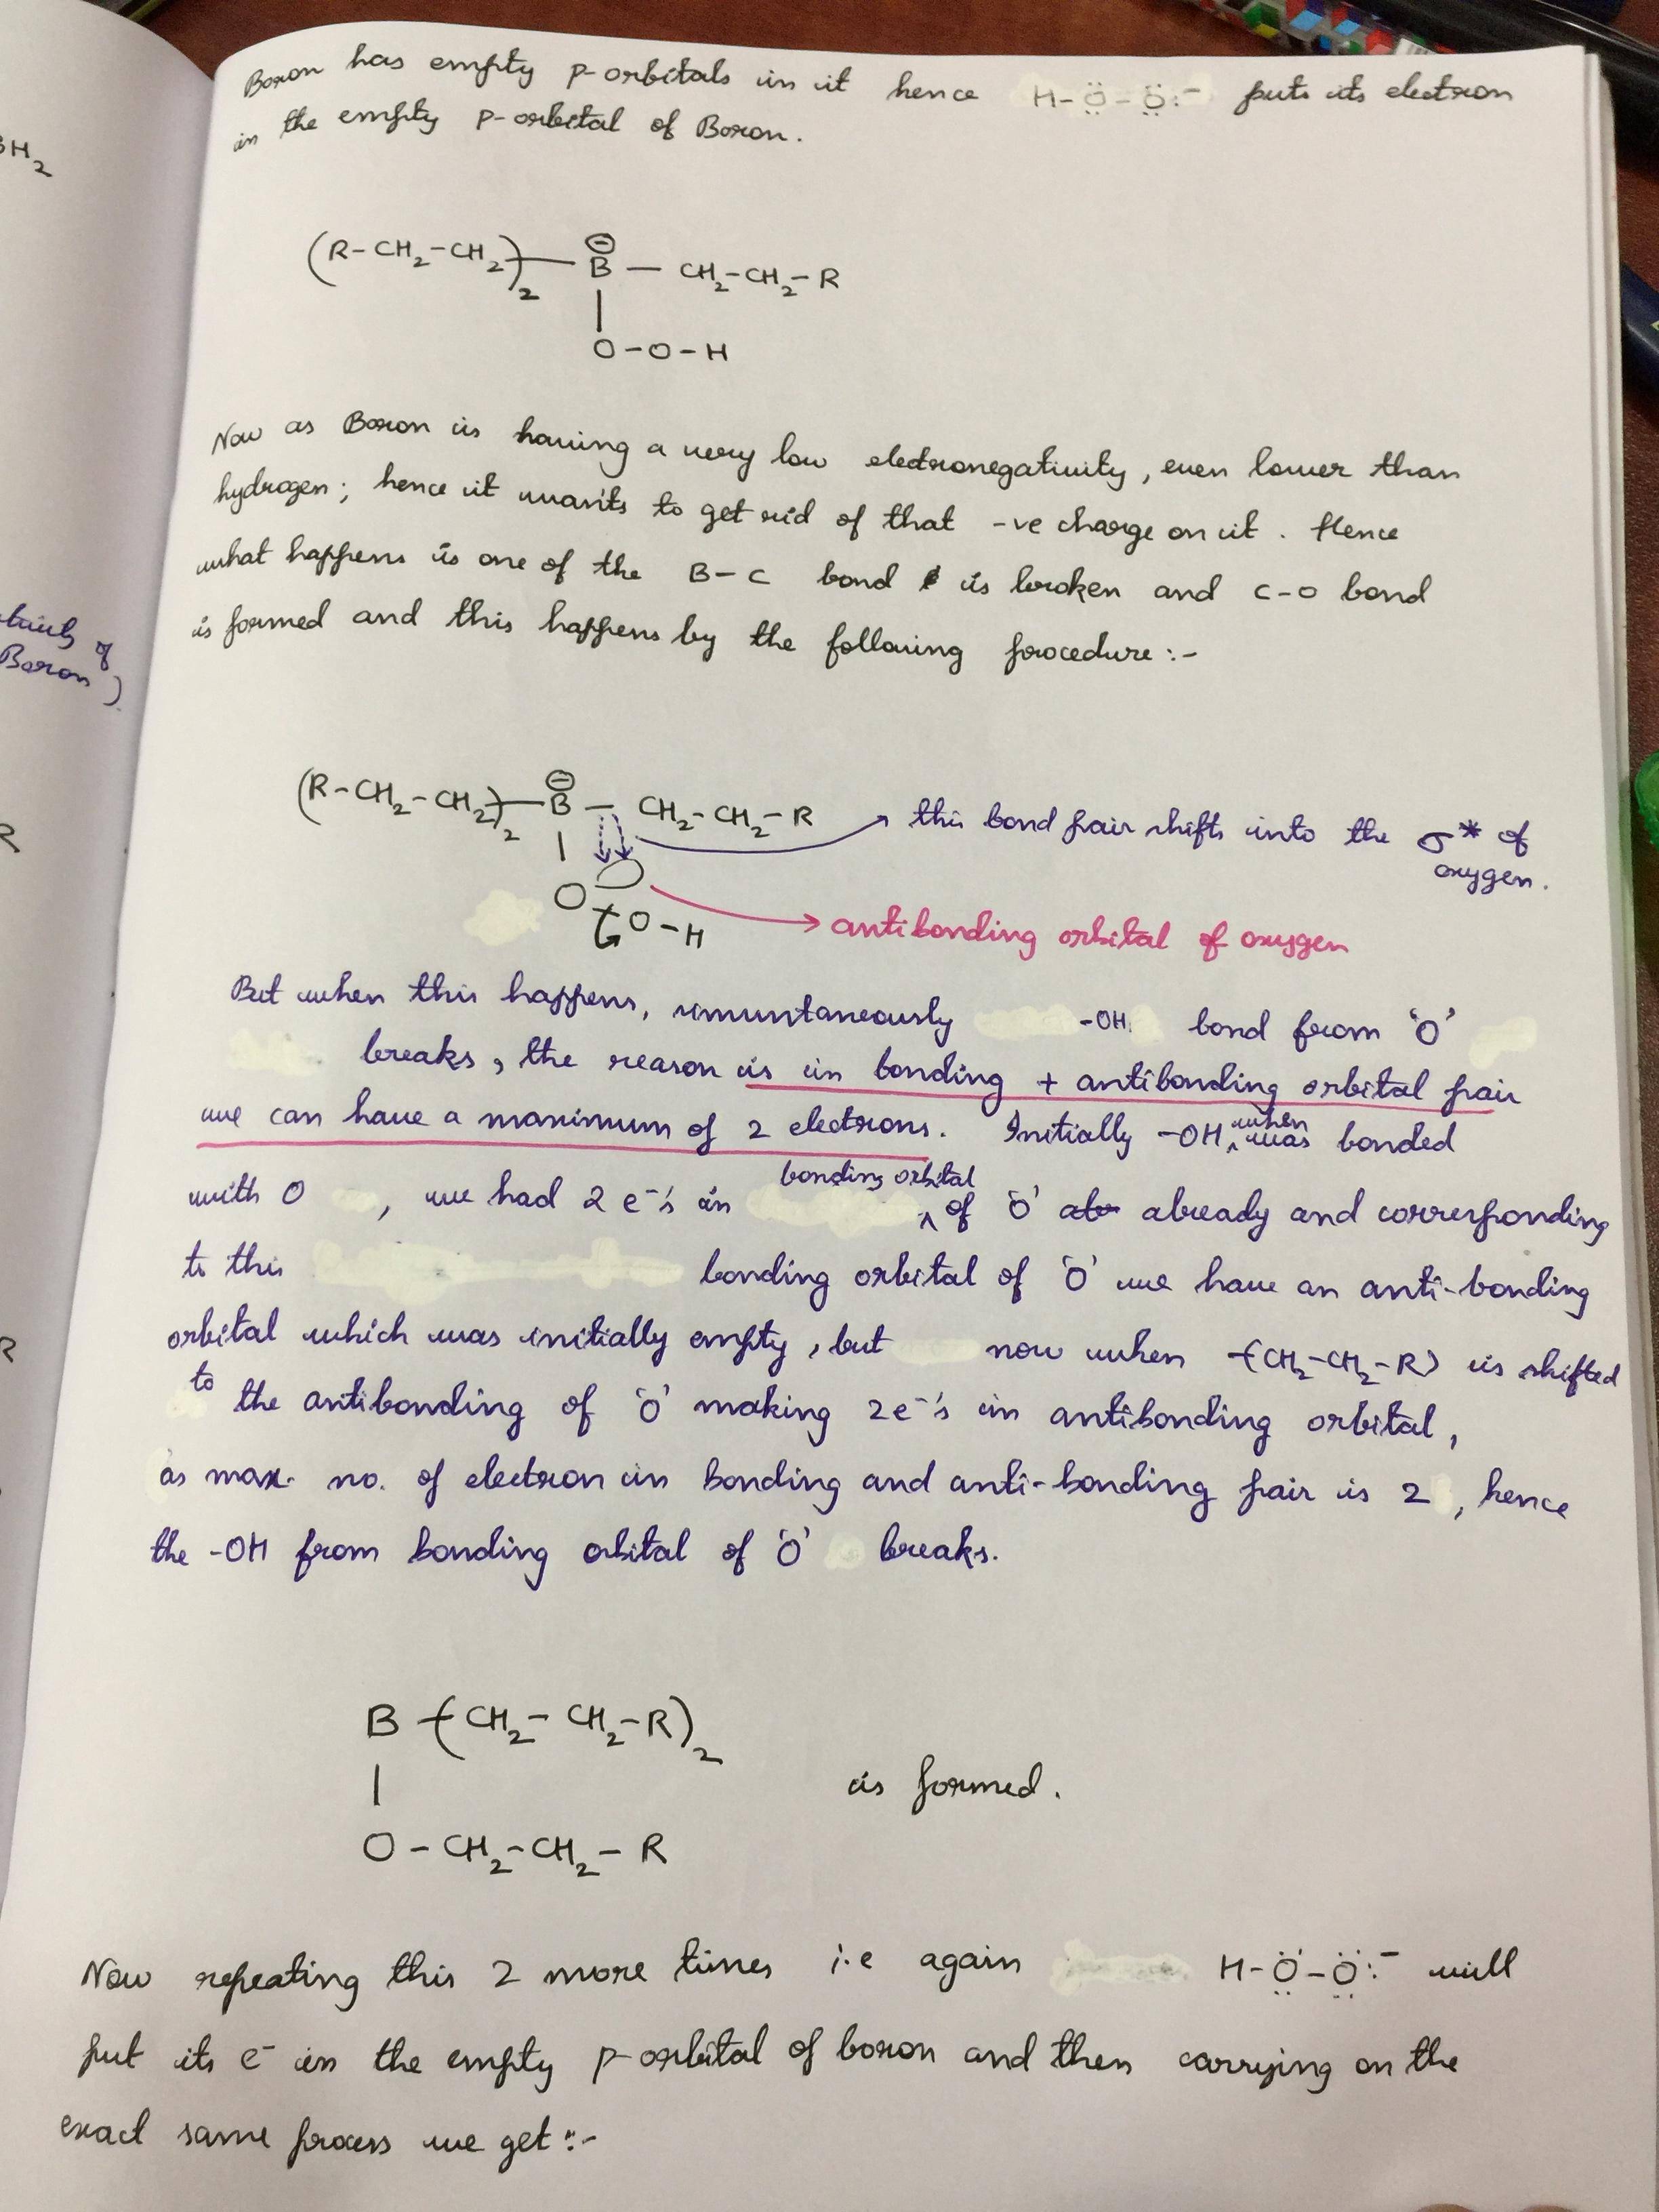 BH2
Boron has empty p-orbitals in it hence H-Ö-Ö:⁻ puts its electron
in the empty p-orbital of Boron.
(R-CH2-CH2)2—B⊖—CH2-CH2-R
|
O-O-H
Now as Boron is having a very low electronegativity, even lower than
hydrogen; hence it wants to get rid of that -ve charge on it. Hence
what happens is one of the B-C bond is broken and C-O bond
is formed and this happens by the following procedure:-
Boron)
(R-CH2-CH2)2—B⊖—CH2-CH2-R → this bond pair shifts into the σ* of
oxygen.
|
O-O-H → antibonding orbital of oxygen
But when this happens, simuntaneously -OH bond from 'O'
breaks, the reason is in bonding + antibonding orbital pair
we can have a maximum of 2 electrons. Initially -OH when was bonded
with O, we had 2 e⁻'s in bonding orbital of 'O' already and corresponding
to this bonding orbital of 'O' we have an anti-bonding
orbital which was initially empty, but now when -(CH2-CH2-R) is shifted
to the antibonding of 'O' making 2e⁻'s in antibonding orbital,
as max. no. of electron in bonding and anti-bonding pair is 2, hence
the -OH from bonding orbital of 'O' breaks.
R
R
B-(CH2-CH2-R)2
|
is formed.
O-CH2-CH2-R
Now repeating this 2 more times i.e again H-Ö-Ö:⁻ will
put its e⁻ in the empty p-orbital of boron and then carrying on the
exact same process we get:-